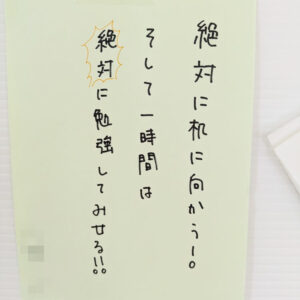 絶対に机に向かう!。
そして一時間は
絶対に勉強してみせる!!